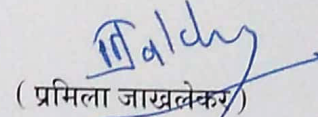 ( प्रमिला जाखलेकर )